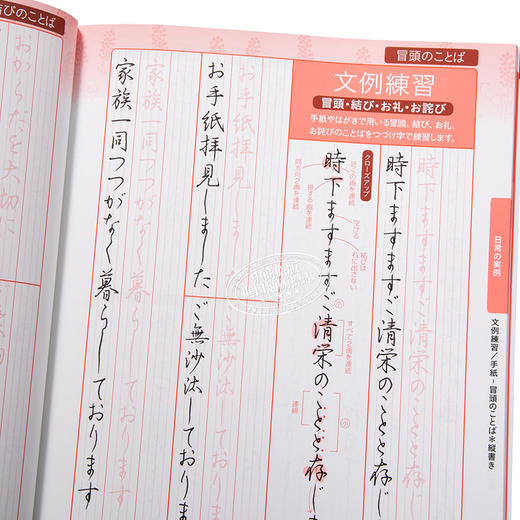 冒頭のことば
文例練習
冒頭・結び・お礼・お詫び
手紙やはがきで用いる冒頭、結び、お礼、
お詫びのことばをつづけ字で練習します。
日常の実例
文例練習/手紙-冒頭のことば*縦書き
時下ますますご清栄のことと存じ
時下ますますご清栄のことと存じ
クローズアップ
時下ますますご清栄のことと存じま
空ける
結びは
右に出さない
小
すべて2画を連続
小
連綿
お手紙拝見しました
お手紙拝見しました
ご無沙汰しております
ご無沙汰しております
家族一同つつがなく暮らしております
家族一同つつがなく暮らしております
結びのことば
おからだを大切に